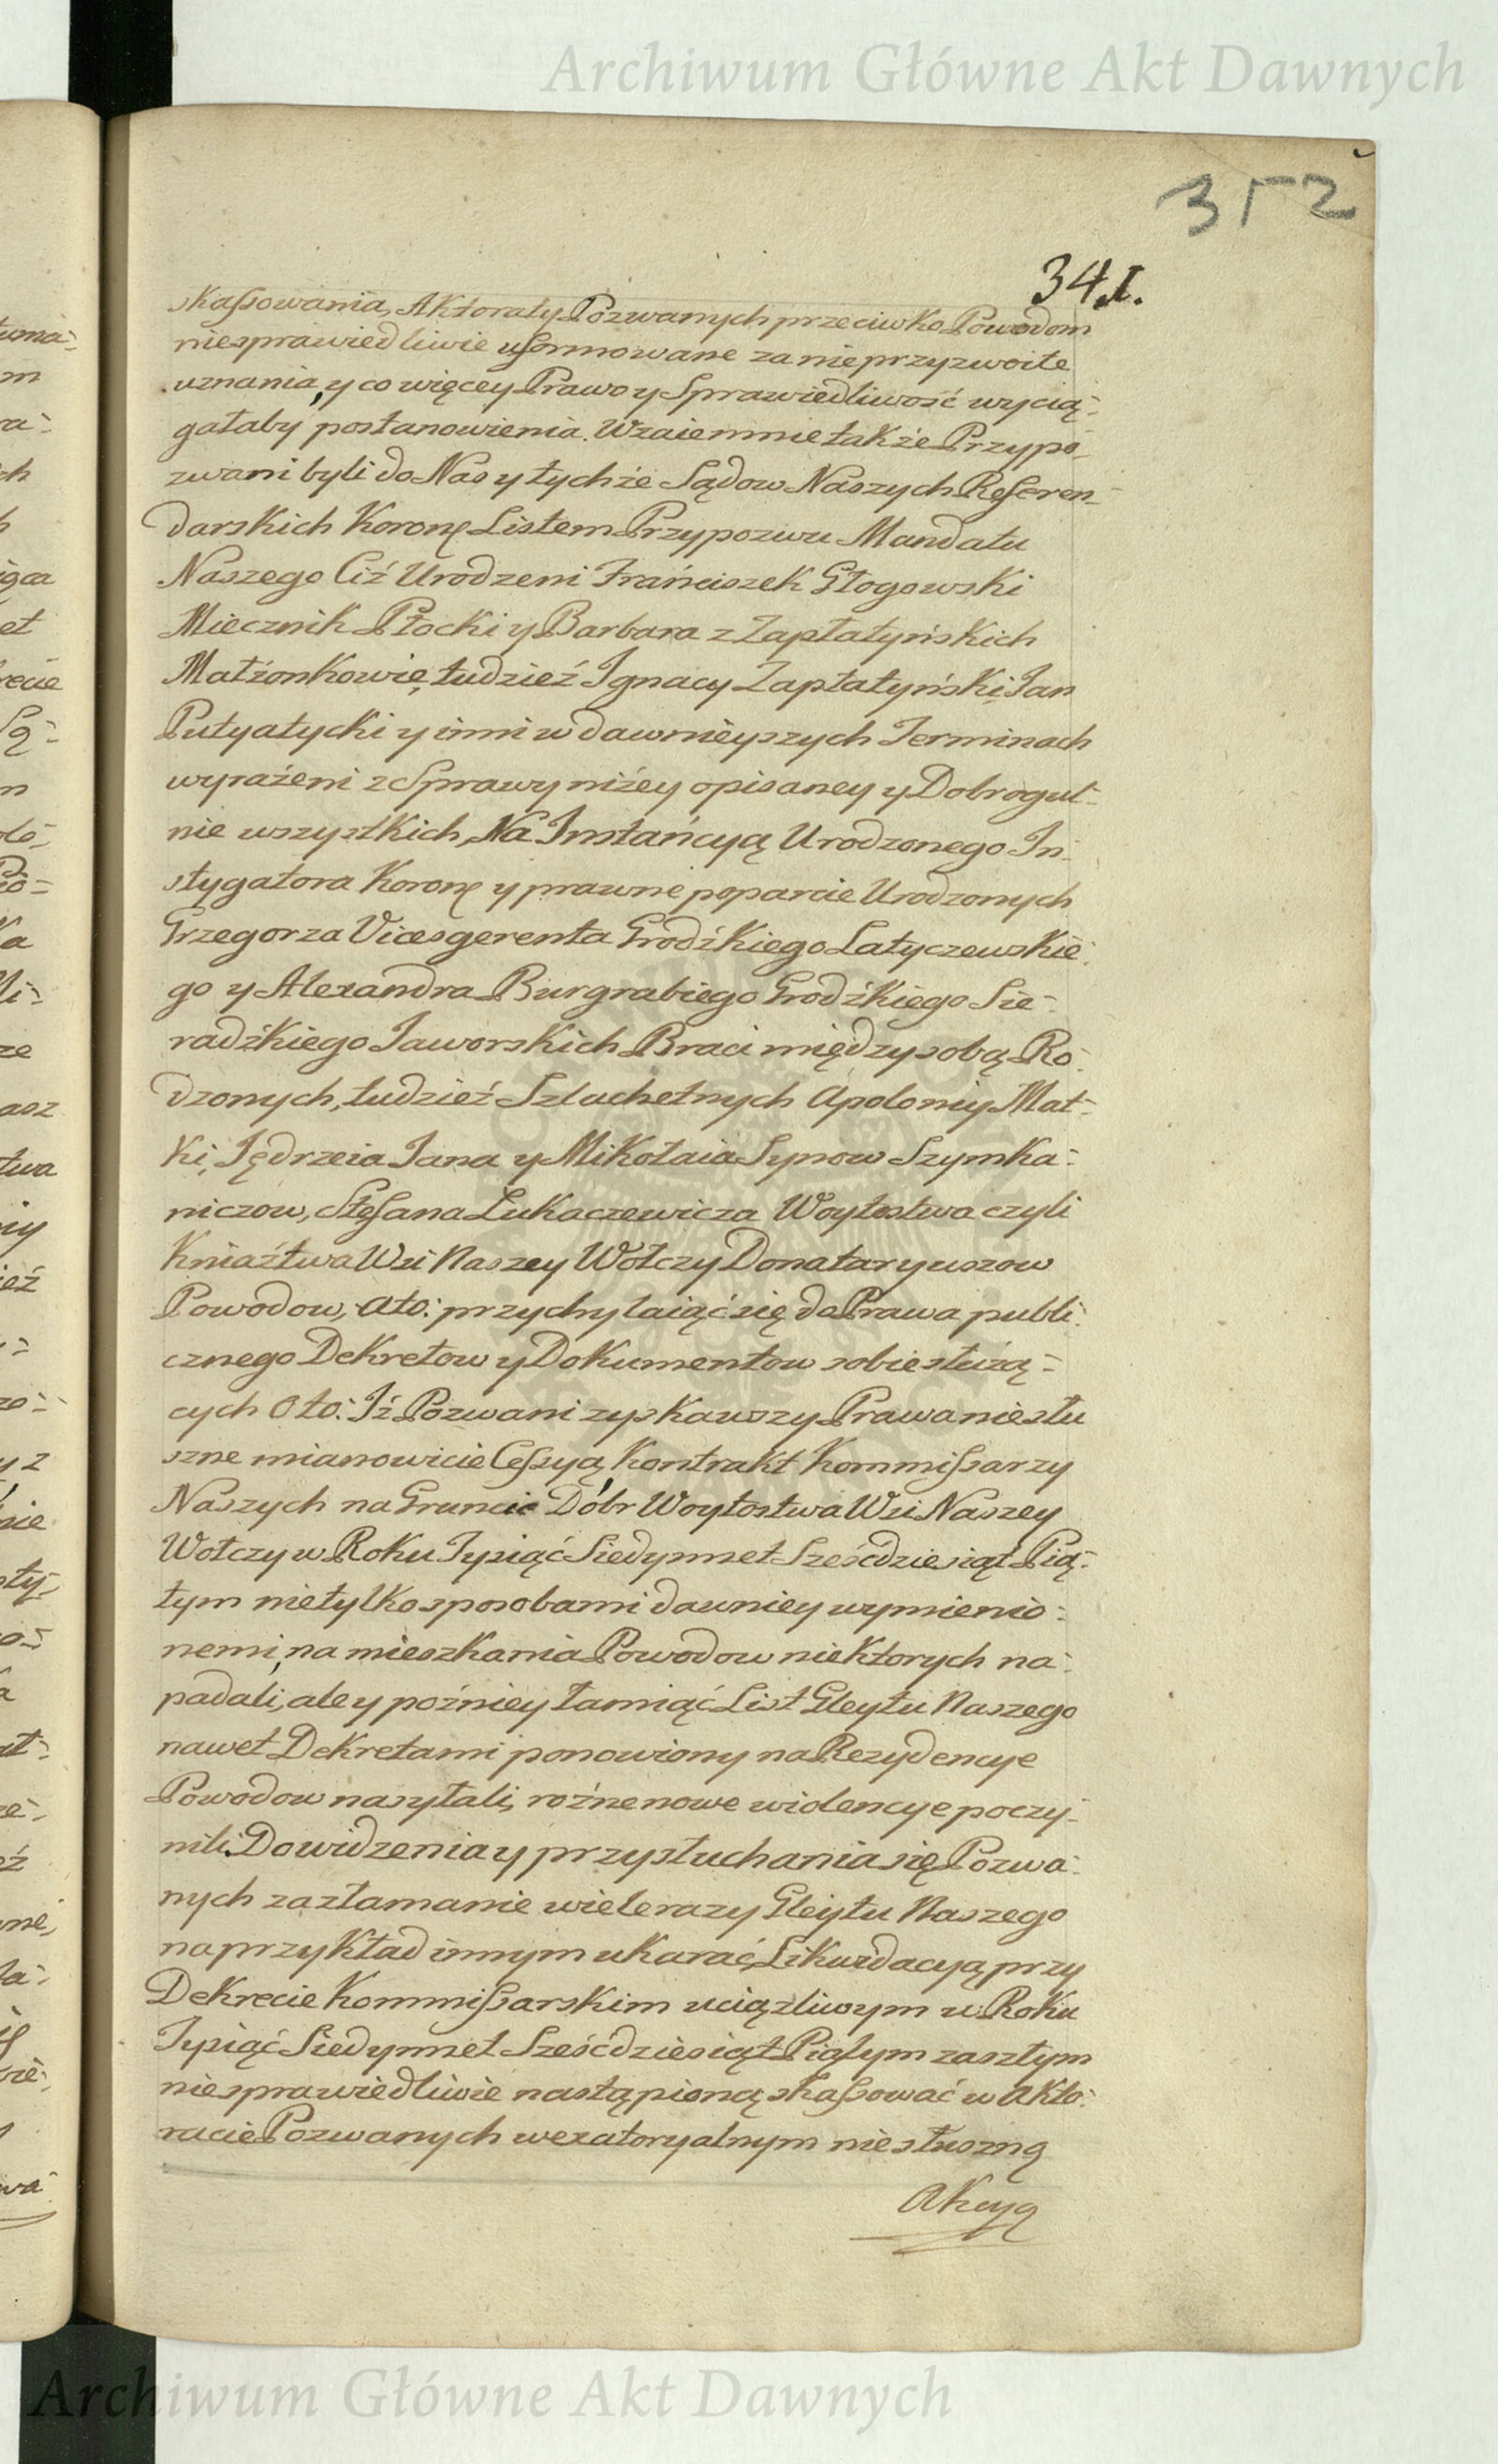 Archiwum Główne Akt Dawnych
352
341.
skassowania, Aktoraty Pozwanych przeciwko Powodom
niesprawiedliwie uformowane za nieprzyzwoite
uznania, y co więcey Prawo y Sprawiedliwość wycią-
gałaby postanowienia. Wzaiemnie także Przypo-
zwani byli do Nas y tychże Sądow Naszych Referen-
darskich Koronę Listem Przypozwu Mandatu
Naszego Ciż Urodzeni Franciszek Głogowski
Miecznik Płocki y Barbara z Zapłatyńskich
Małżonkowie, tudzież Ignacy Zapłatyński, Jan
Putyatycki y inni w dawnieyszych Terminach
wyrażeni z Sprawy niżey opisaney y Dobr ogul-
nie wszystkich, Na Instańcyą Urodzonego In-
stygatora Koronę y prawne poparcie Urodzonych
Grzegorza Vicesgerenta Grodźkiego Latyczewskie-
go y Alexandra Burgrabiego Grodźkiego Sie-
radźkiego Jaworskich Braci między sobą Ro-
dzonych, tudzież Szlachetnych Apoloniy Mat-
ki, Jędrzeia Jana y Mikołaia Synow Szymka-
niczow, Stefana Łukaczewicza Woytostwa czyli
Kniaźtwa Wsi Naszey Wołczy Donataryuszow
Powodow, a to: przychylaiąć się do Prawa publi-
cznego Dekretow y Dokumentow sobie służą-
cych O to: Iż Pozwani zyskawszy Prawa niesłu
szne mianowicie Cessyą, Kontrakt Kommissarzy
Naszych na Gruncie Dóbr Woytostwa Wsi Naszey
Wołczy w Roku Tysiąć Siedymset Sześćdziesiąt Pią-
tym nie tylko sposobami dawniey wymienio-
nemi, na mieszkania Powodow niektorych na-
padali, ale y poźniey łamiąć List Gleytu Naszego
nawet Dekretami ponowiony na Rezydencye
Powodow nasyłali, rożne nowe wiolencye poczy-
nili. Do widzenia y przysłuchania się Pozwa-
nych za złamanie wiele razy Gleytu Naszego
na przykład innym ukarać, Likwidacyą przy
Dekrecie Kommissarskim uciązliwym w Roku
Tysiąć Siedymset Sześćdziesiąt Piątym zaszłym
niesprawiedliwie nastąpioną skassować w Akto-
racie Pozwanych wexatoryalnym niesłuszną
Akcyą
Archiwum Główne Akt Dawnych